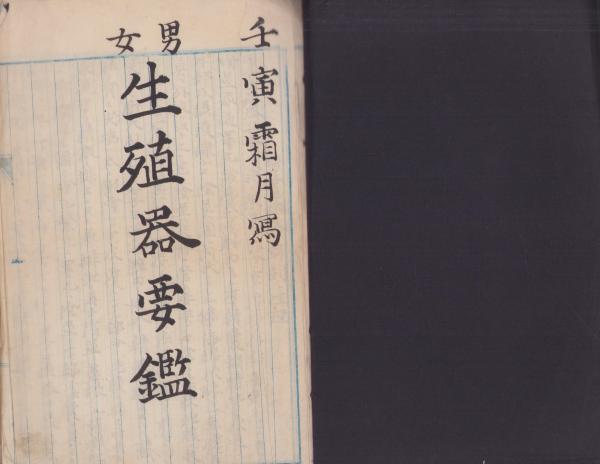 壬寅霜月寫
男女
生殖器要鑑